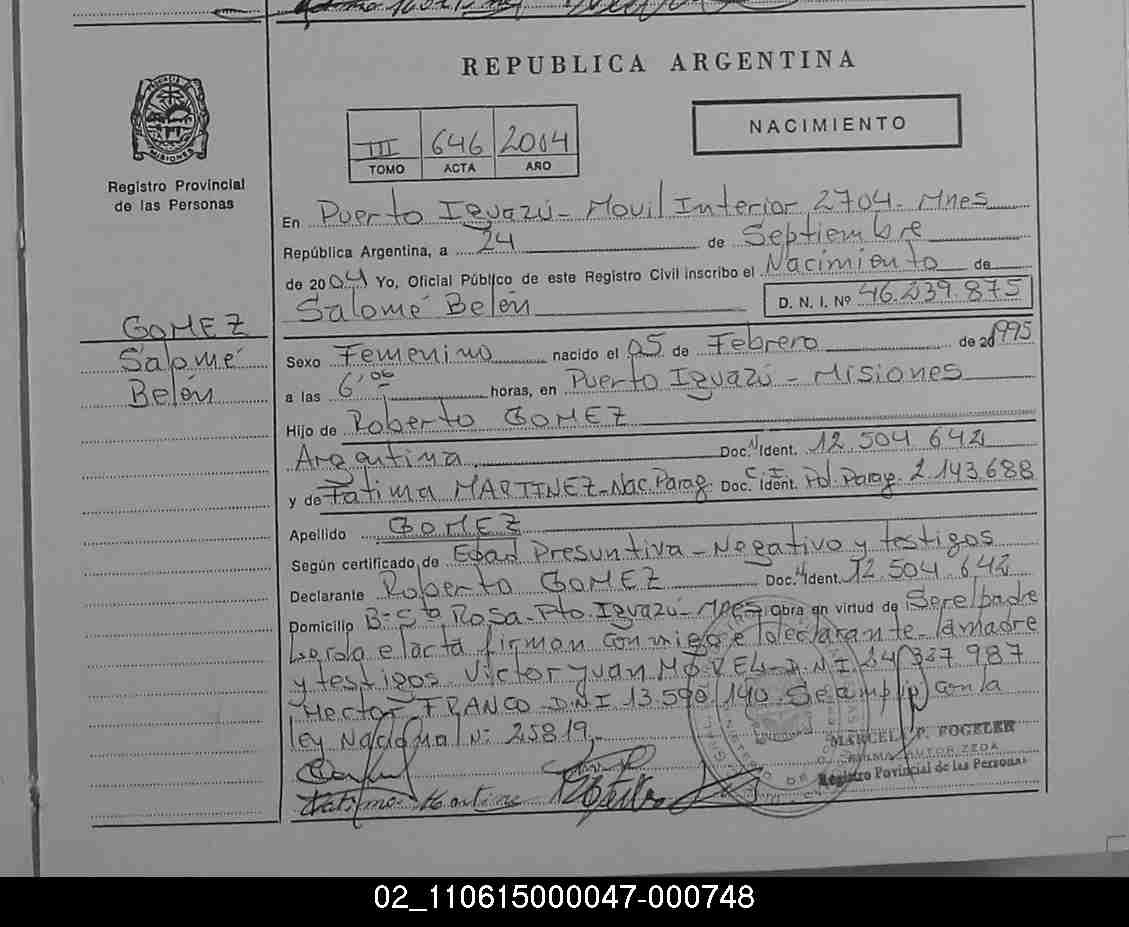 REPUBLICA ARGENTINA
III 646 2004
TOMO ACTA AÑO
NACIMIENTO
MISIONES
Registro Provincial
de las Personas
En Puerto Iguazú - Movil Interior 2704 - Mnes
República Argentina, a 24 de Septiembre
de 2004 Yo, Oficial Público de este Registro Civil inscribo el Nacimiento de
Salomé Belén D. N. I. Nº 46.239.875
GOMEZ
Salomé
Belén
Sexo Femenino nacido el 05 de Febrero de 20 1995
a las 6,00 horas, en Puerto Iguazú - Misiones
Hijo de Roberto GOMEZ
Argentina Doc. N Ident. 12 504 642
y de Fatima MARTINEZ - Nac. Parag. Doc. C.I. Ident. Pol. Parag. 2.143.688
Apellido GOMEZ
Según certificado de Edad Presuntiva - Negativo y testigos
Declarante Roberto GOMEZ Doc. N Ident. 12.504.642
Domicilio B: Sta Rosa - Pto. Iguazú - Mnes Obra en virtud de Ser el padre
el acta firman conmigo el declarante la madre
y testigos Victor Juan D.N.I. 987
Hector FRANCO D.N.I 13.590.140 Se con la
ley Nacional Nº 25819
MARCELA P. FOGELER
Registro Provincial de las Personas
Fatima Martine
02_110615000047-000748